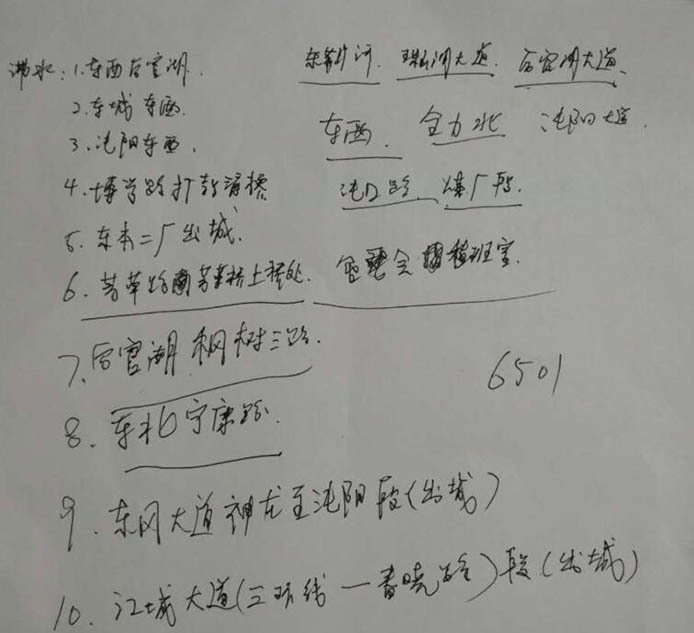 沸水：1.东西后官湖.
2.东城东西.
3.沌阳东西.
4.博学路打鼓渡桥
5.东本二厂出城.
6.芳草路南芳草桥上桥处.
7.后官湖枫树三路.
8.东北宁康路.
9.东风大道神龙至沌阳段(出城)
10.江城大道(三环线一春晓路)段(出城)
东荆河. 珠湖大道. 后官湖大道.
东西. 全力北 沌阳大道.
沌口路. 厂段.
班室.
6501